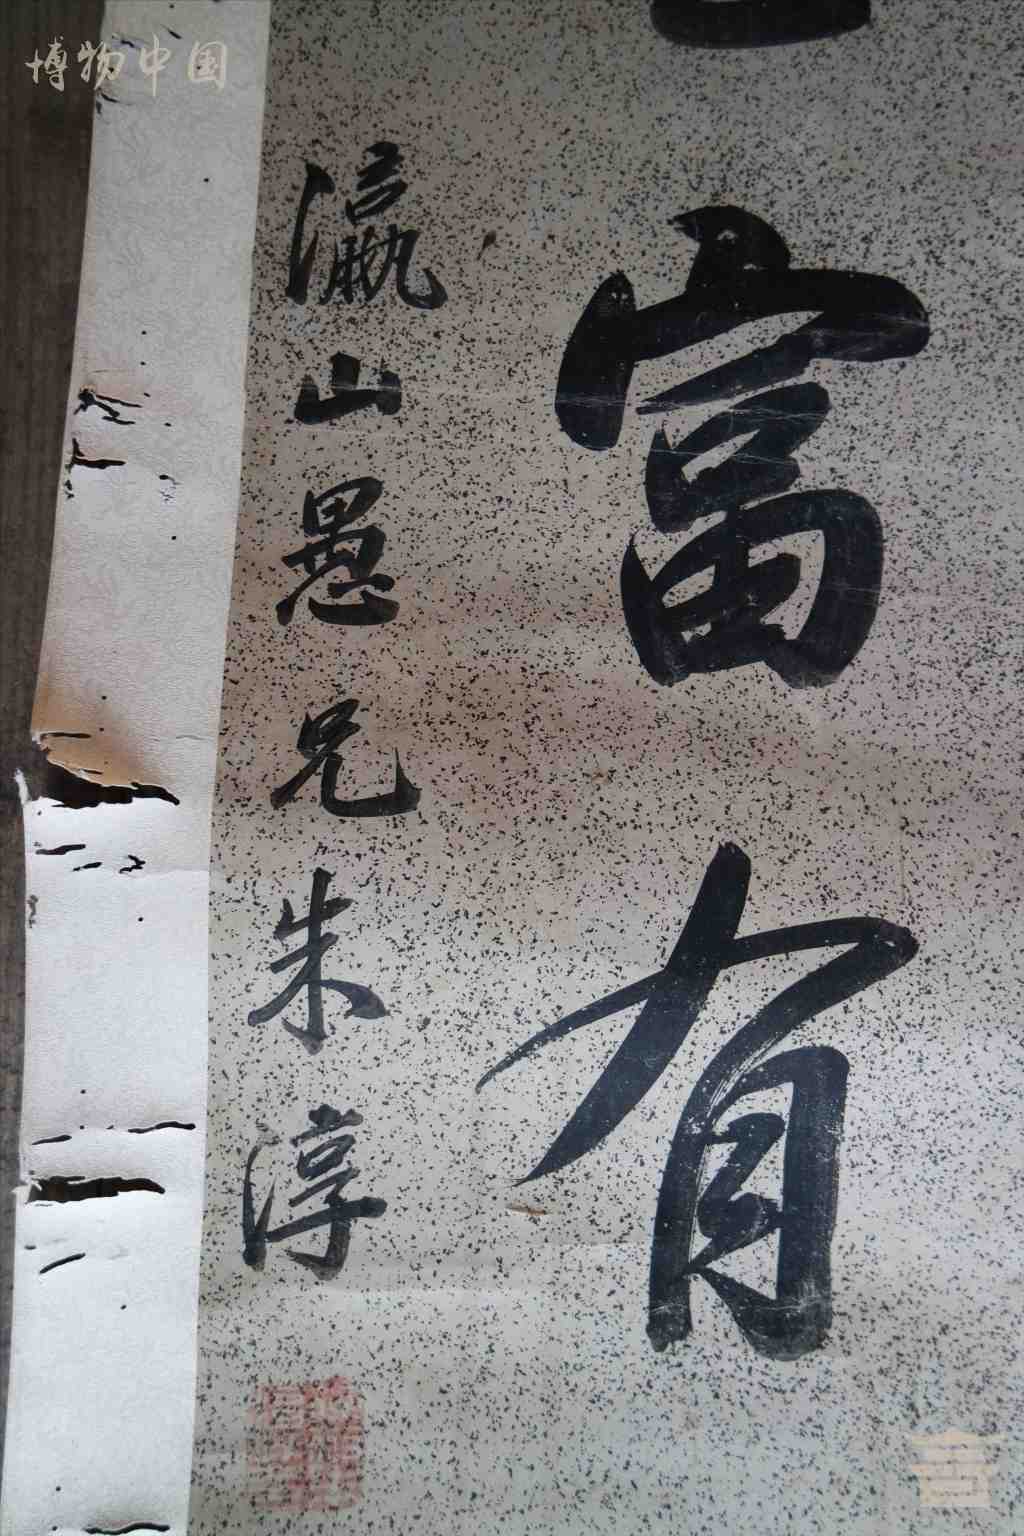 博物中国
富有
瀛山愚兄朱淳